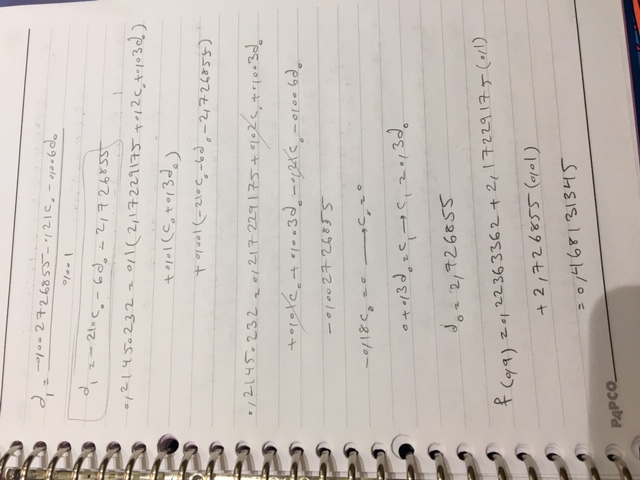 d₁ = -0,002726855 - 0,21c₀ - 0,006d₀
0,001
d₁ = -210c₀ - 6d₀ - 2,726855
0,21450232 = 0,1(2,17229175 + 0,2c₀ + 0,03d₀)
+0,01(c₀ + 0,3d₀)
+0,001(-210c₀ - 6d₀ - 2,726855)
0,21450232 = 0,217229175 + 0,02c₀ + 0,003d₀
+0,01c₀ + 0,003d₀ - 0,21c₀ - 0,006d₀
-0,002726855
-0,18c₀ = 0 → c₀ = 0
0 + 0,3d₀ = c₁ → c₁ = 0,3d₀
d₀ = 2,726855
f(0,9) = 0,22363362 + 2,17229175(0,1)
+ 2,726855(0,01)
= 0,468131345
PAPCO